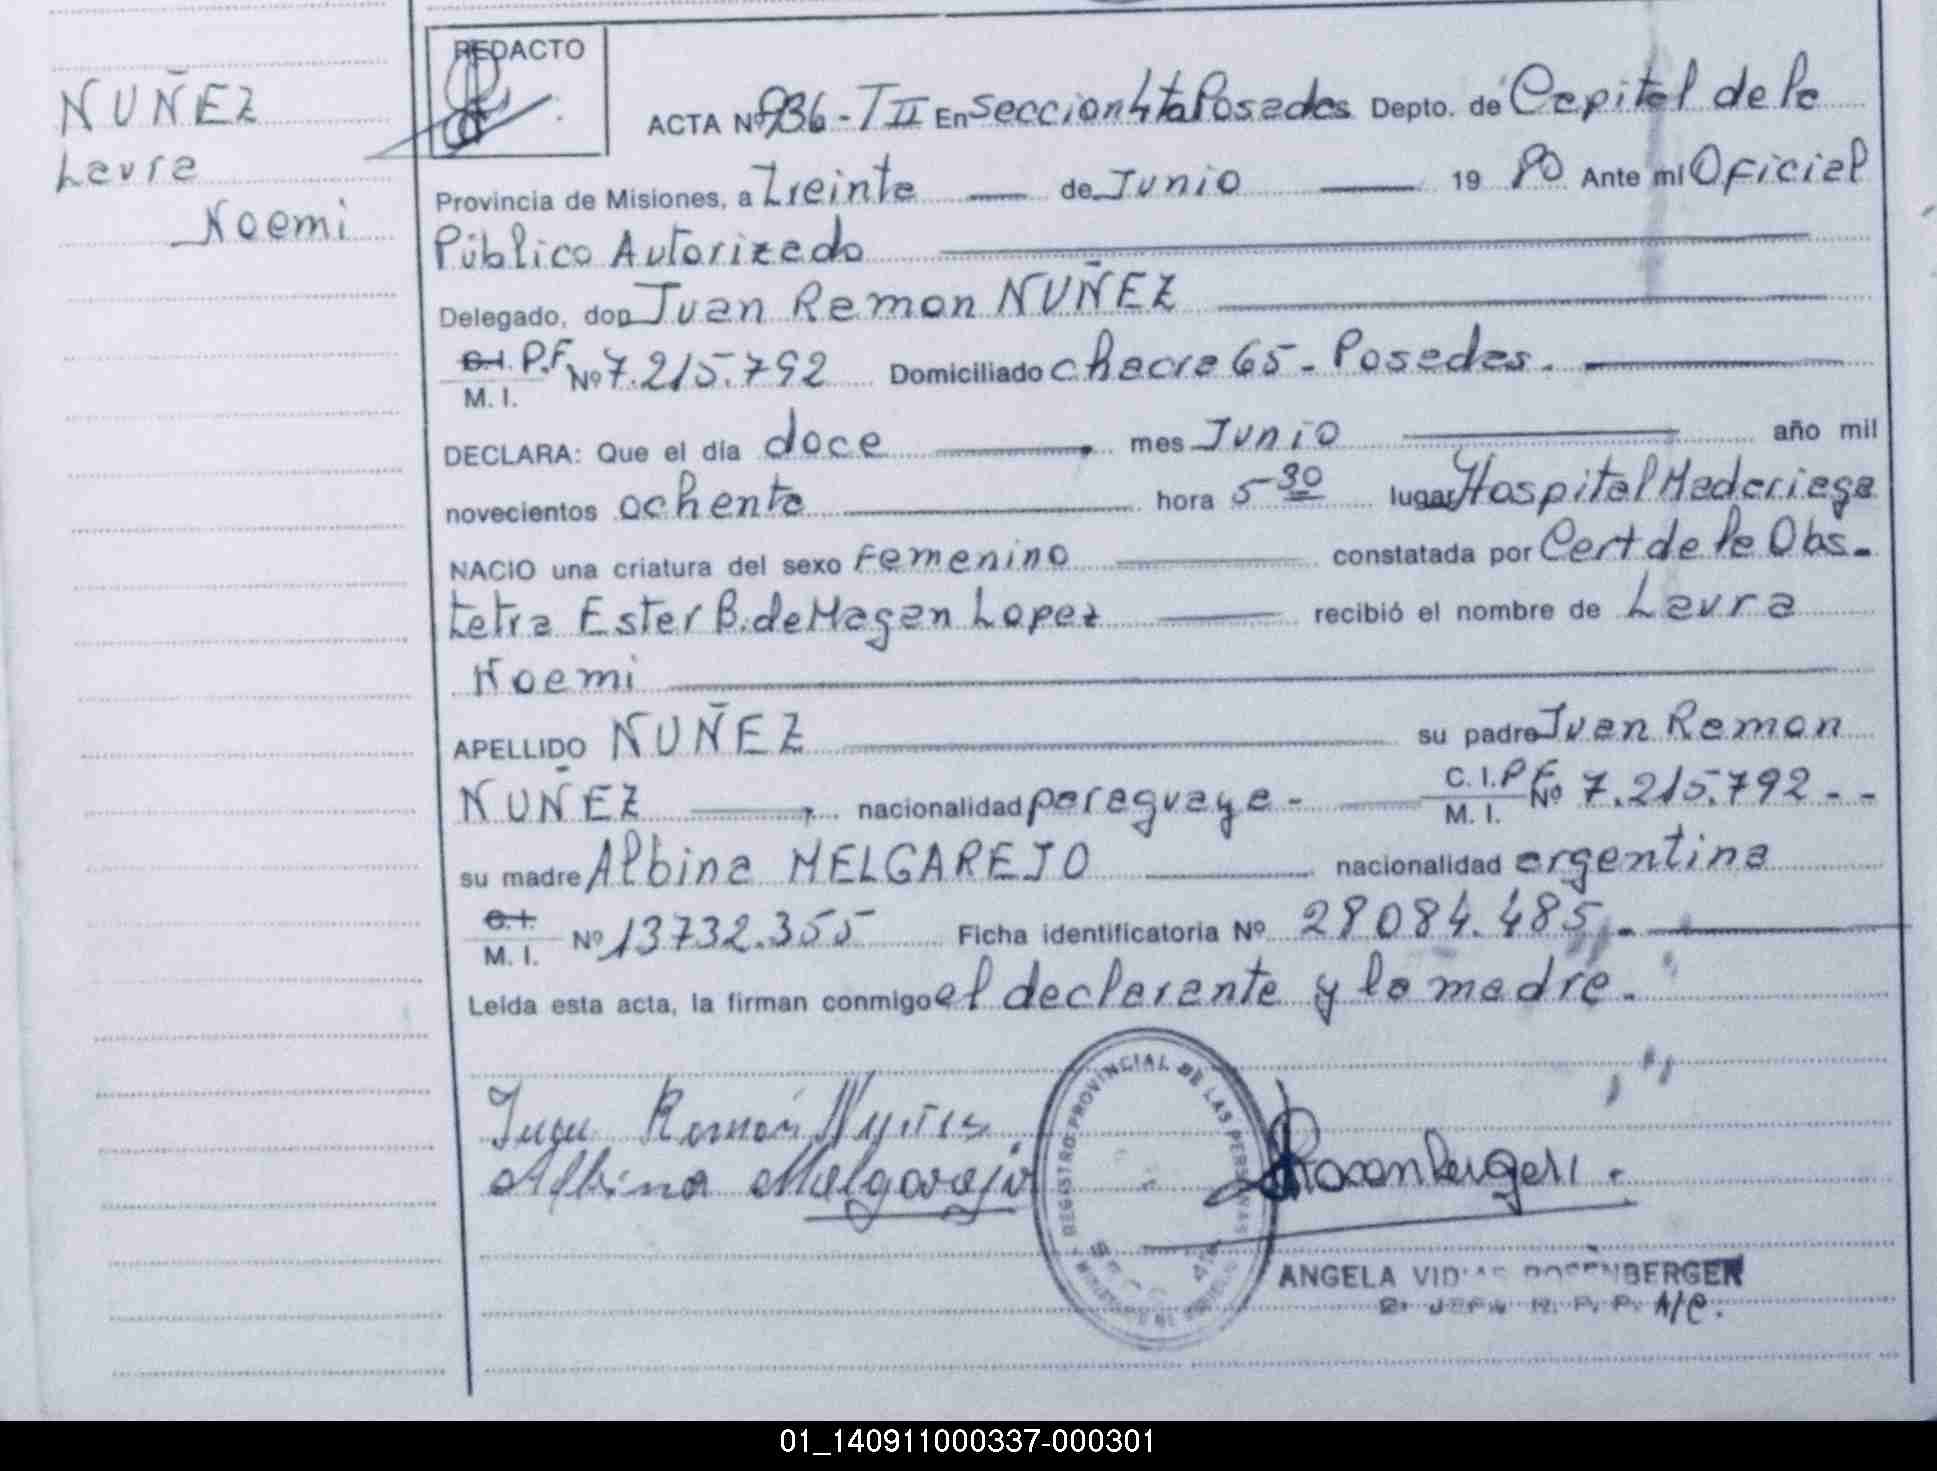 NUÑEZ
Laura
Noemi
REDACTO
ACTA Nº 936 - T II En Sección 4ta Posadas Depto. de Capital de la
Provincia de Misiones, a Treinta de Junio 19 80 Ante mi Oficial
Público Autorizado
Delegado, don Juan Ramon NUÑEZ
C.I. P.F. Nº 7.215.792 Domiciliado chacra 65 - Posadas.
M. I.
DECLARA: Que el día doce mes Junio año mil
novecientos ochenta hora 5-30 lugar Hospital Madariaga
NACIO una criatura del sexo Femenino constatada por Cert de la Obs-
tetra Ester B. de Magan Lopez recibió el nombre de Laura
Noemi
APELLIDO NUÑEZ su padre Juan Ramon
NUÑEZ nacionalidad paraguaya - C. I. P.F. Nº 7.215.792 - -
M. I.
su madre Albina MELGAREJO nacionalidad argentina
C.I.
M. I. Nº 13732.355 Ficha identificatoria Nº 28084.485. -
Leída esta acta, la firman conmigo el declarante y la madre.
Juan Ramón Nuñez
Albina Melgarejo
REGISTRO PROVINCIAL DE LAS PERSONAS
Rosenberger
ANGELA ROSENBERGER
JEFA R. P. P. A/C.
01_140911000337-000301